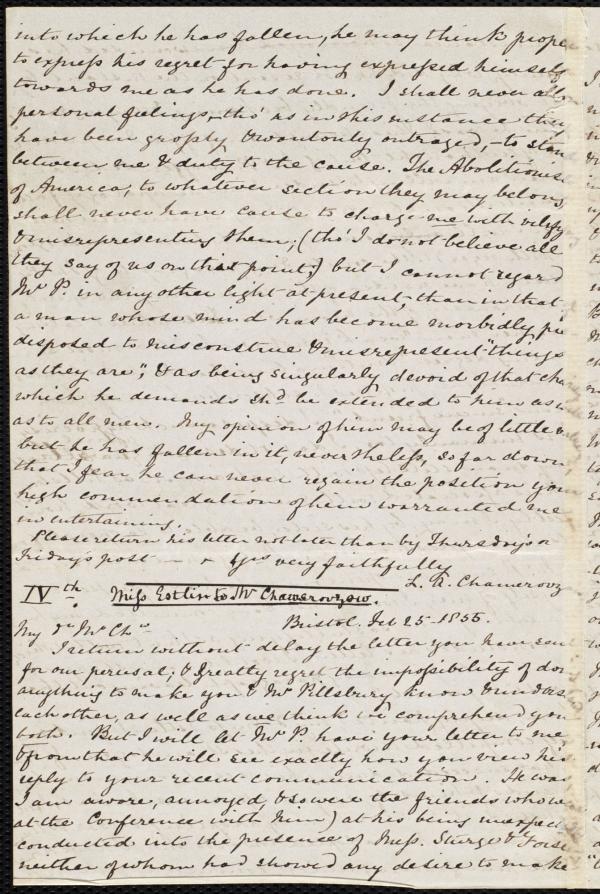 into which he has fallen, he may think prope
to express his regret for having expressed himself
towards me as he has done. I shall never allo
personal feelings, – tho' as in this instance they
have been grossly & wantonly outraged, – to stan
between me & duty to the cause. The Abolitionis
of America, to whatever section they may belong,
shall never have cause to charge me with vilify
& misrepresenting them, (tho' I do not believe all
they say of us on that point;) but I cannot regard
Mr P. in any other light at present, than in that
a man whose mind has become morbidly pre
disposed to misconstrue & misrepresent "things
as they are", & as being singularly devoid of that cha
which he demands shd be extended to him as w
as to all men. My opinion of him may be of little v
but he has fallen in it, nevertheless, so far down
that I fear he can never regain the position your
high commendation of him warranted me
in entertaining.
Please return his letter not later than by Thursday's or
Friday's post — Yrs very faithfully
L. A. Chamerovz
IVth. Miss Estlin to Mr Chamerovzow.
Bristol. Feb 25. 1855.
My dr Mr Chw
I return without delay the letter you have sent
for our perusal; & I greatly regret the impossibility of doi
anything to make you & Mr Pillsbury know & unders
each other, as well as we think we comprehend you
both. But I will let Mr P. have your letter to me
& from that he will see exactly how you view his
reply to your recent communication. He was
I am aware, annoyed, (& so were the friends who we
at the Conference with him) at his being unexpec
conducted into the presence of Mess. Sturge & Forse
neither of whom had showed any desire to make